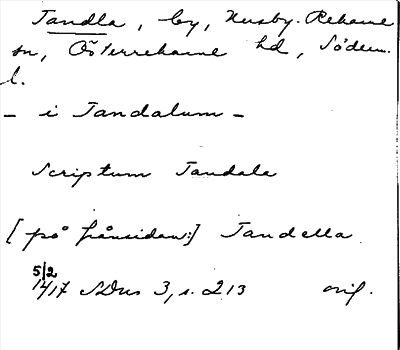 Tandla, by, Husby-Rekarne
sn, Österrekarne hd, Söderm.
l.
- i Tandalum -
Scriptum Tandala
[på frånsidan:] Tandella
5/2
1417 SDns 3, s. 213 orig.